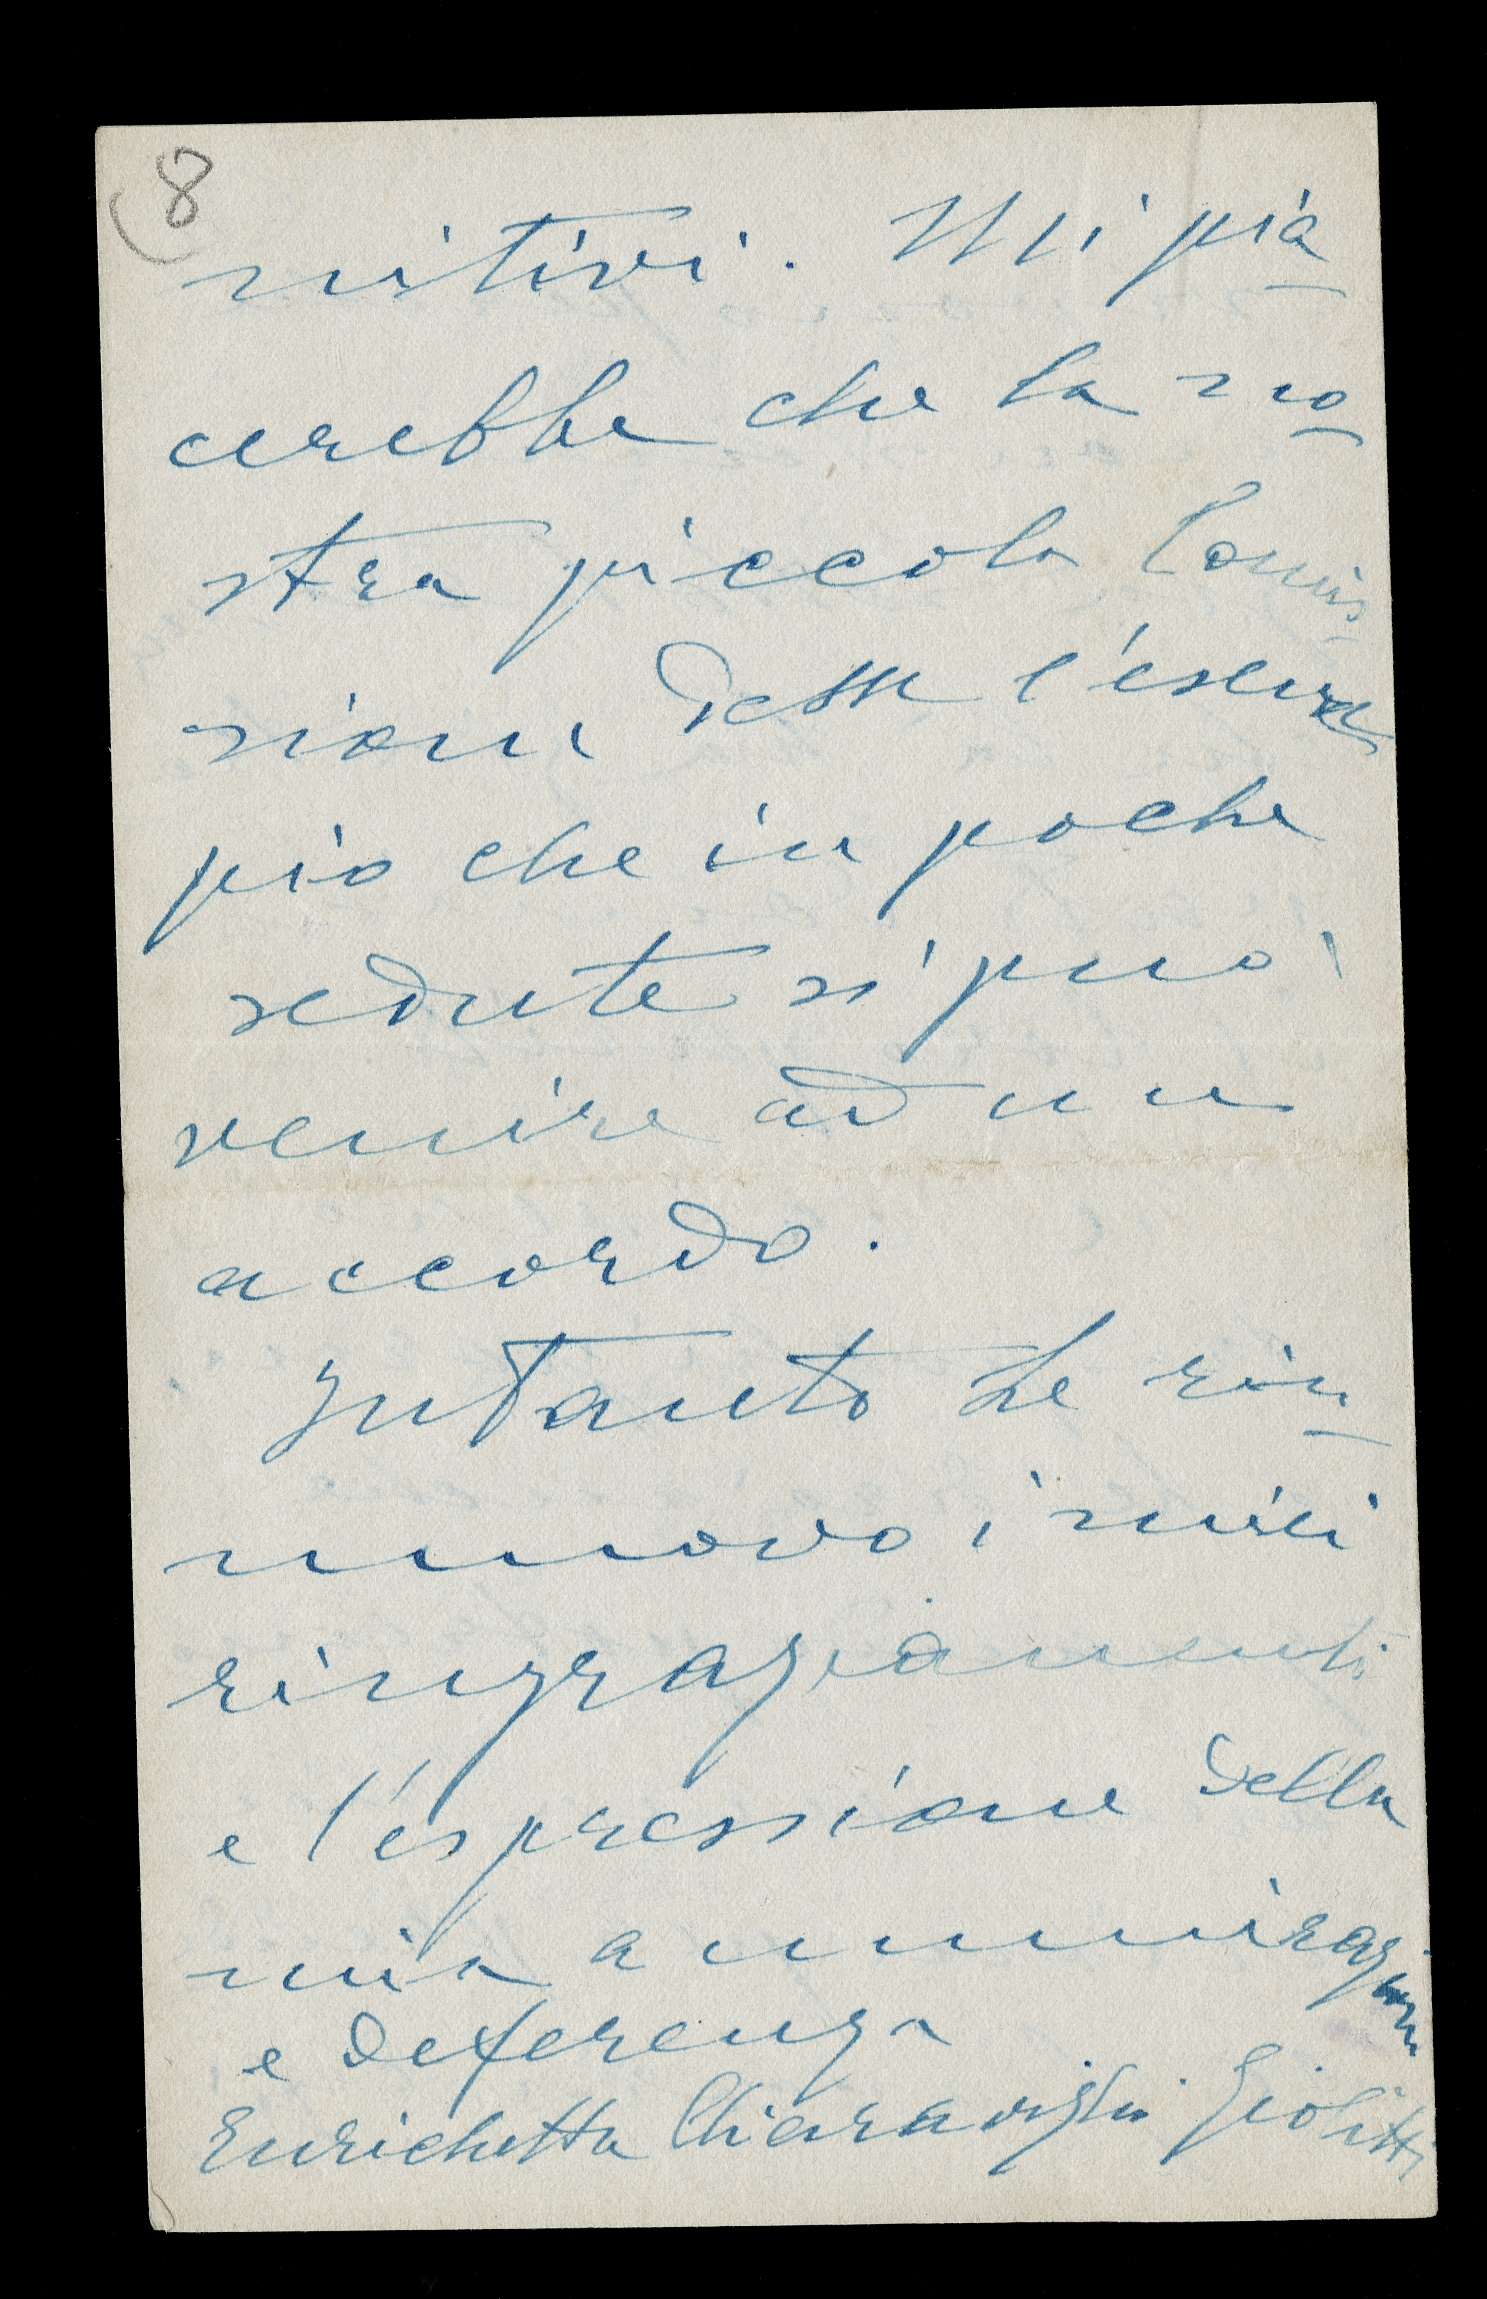 8
nitivi. Mi pia_
cerebbe che la no_
stra piccola Commis_
sione desse l'esem_
pio che in poche
sedute si può
venire ad un
accordo.
Intanto Le rin_
nuovo i miei
ringraziamenti
e l'espressione della
mia ammirazione
e deferenza
Enrichetta Chiaraviglio Giolitti